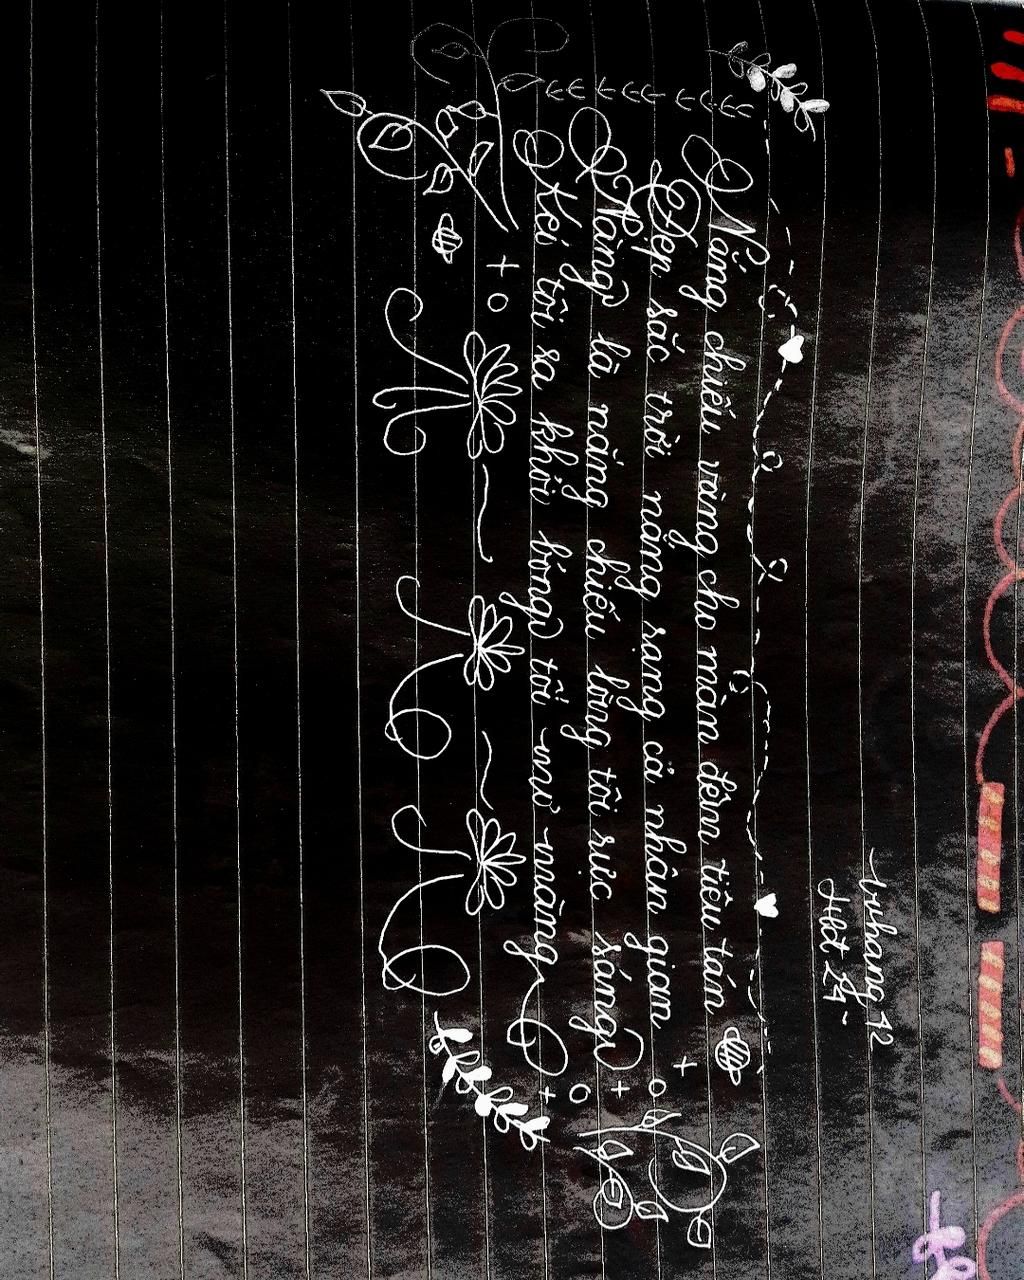 Nắng chiều vàng cho màn đêm tiêu tán
Đẹp sắc trời nắng rạng cả nhân gian
Nàng là nắng chiếu lòng tôi rực sáng
Kéi tôi sa khỏi bóng tối mơ màng